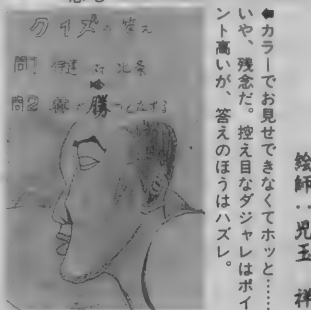 クイズの答え
問1 伊達 対 北条
問2 勝
絵師：児玉 祥
←カラーでお見せできなくてホッと……
いや、残念だ。控え目なダジャレはポイ
ント高いが、答えのほうはハズレ。